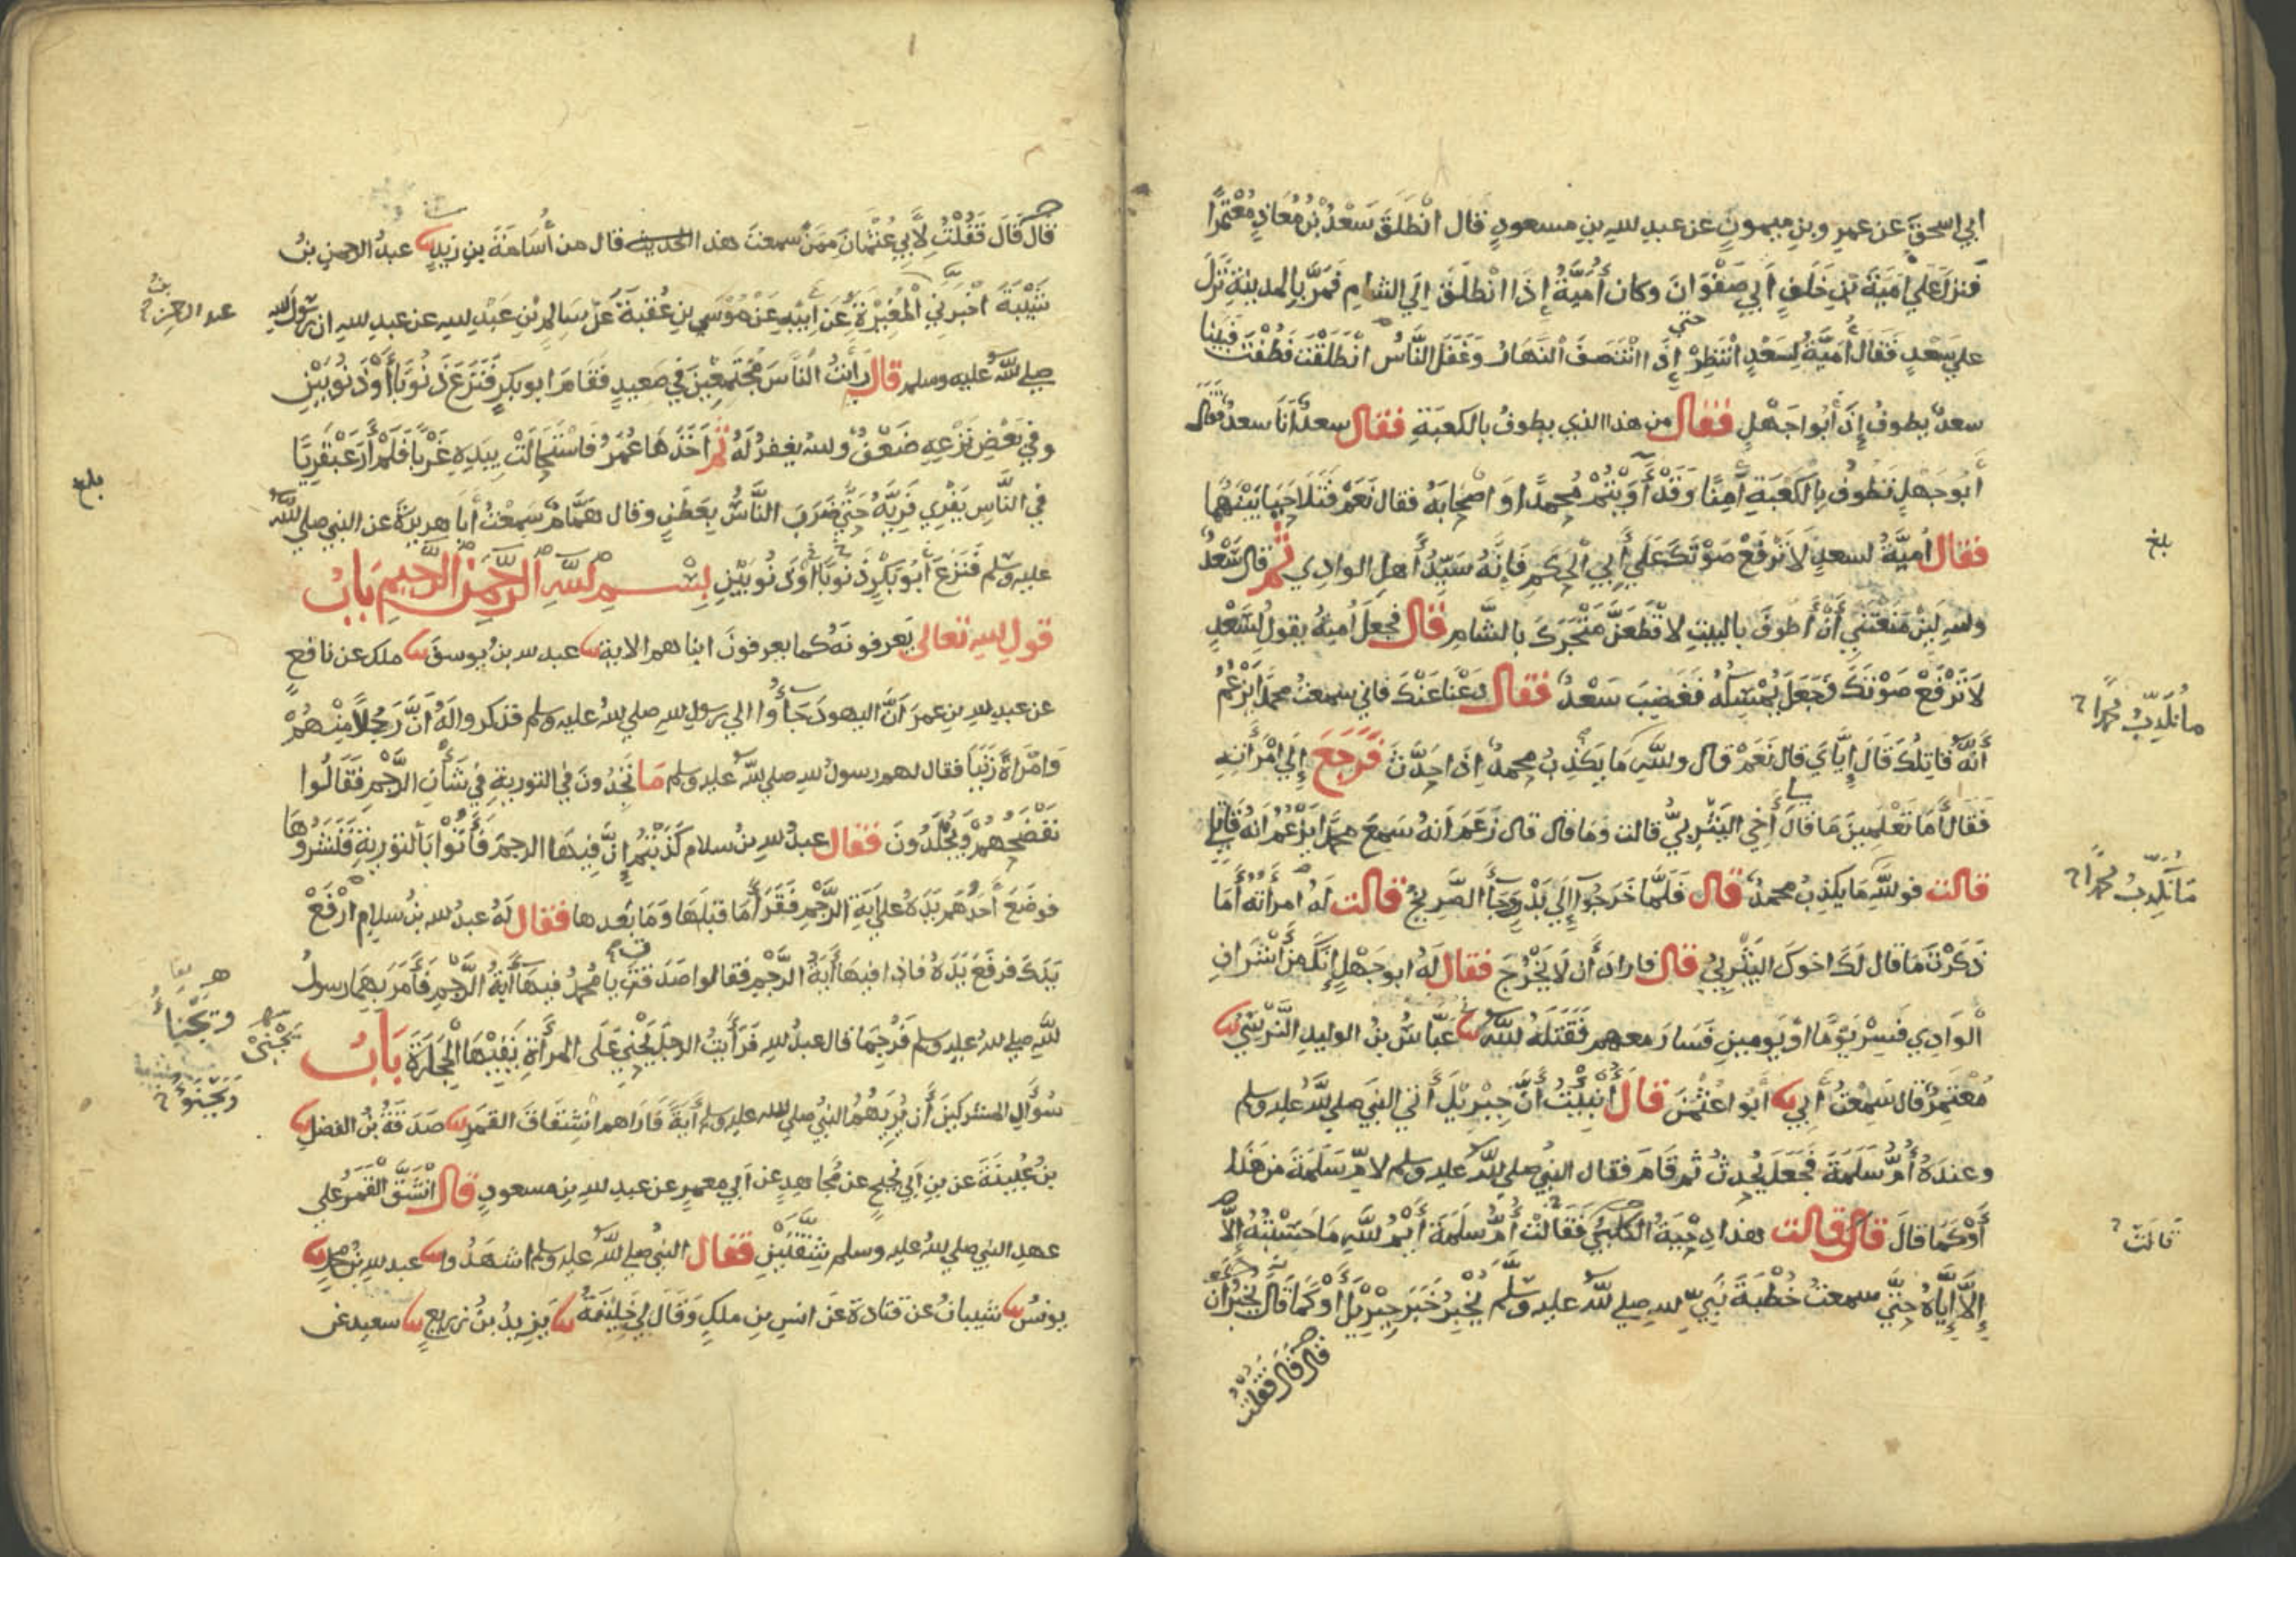 ابي اسحق عن عمرو بن ميمون عن عبد الله بن مسعود قال انطلق سعد بن معاذ معتمرا
فنزل علي امية بن خلف ابي صفوان وكان أمية إذا انطلق الي الشام فمر بالمدينة نزل
علي سعد فقال أمية لسعد انتظر حتي إذا انتصف النهار وغفل الناس انطلقت فطفت فبينا
سعد يطوف إذا أبوا جهل فقال من هذا الذي يطوف بالكعبة فقال سعد أنا سعد فقال
أبو جهل تطوف بالكعبة آمنا وقد أويتم محمدا واصحابه فقال نعم فتلاحيا بينهما
فقال أمية لسعد لا ترفع صوتك علي أبي الحكم فإنه سيد أهل الوادي ثم قال سعد
والله لين منعتني أن أطوف بالبيت لاقطعن متجرك بالشام قال فجعل أمية يقول لسعد
لا ترفع صوتك وجعل يمسكه فغضب سعد فقال دعنا عنك فاني سمعت محمدا يزعم
أنه قاتلك قال إياي قال نعم قال والله ما يكذب محمد اذا حدث فرجع إلي امرأته
فقال أما تعلمين ما قال أخي اليثربي قالت وما قال قال زعم انه سمع محمدا يزعم انه قاتلي
قالت فو الله ما يكذب محمد قال فلما خرجوا إلي بدر وجأ الصريخ قالت له امرأته أما
ذكرت ما قال لك اخوك اليثربي قال فاراد أن لا يخرج فقال له ابو جهل إنك من أشراف
الوادي فسر يوما او يومين فسار معهم فقتله الله عباس بن الوليد النرسي
معتمر قال سمعت أبي أبوا عثمن قال أنبيت أن جبريل أتي النبي صلي الله عليه وسلم
وعنده أم سلمة فجعل يحدث ثم قام فقال النبي صلي الله عليه وسلم لام سلمة من هذا
أو كما قال قال قالت هذا دحية الكلبي فقالت أم سلمة أيم الله ما حسبته إلا
إلا إياه حتي سمعت خطبة نبي الله صلي الله عليه وسلم يخبر خبر جبريل أو كما قال
قال قال فقلت
بلغ
ما يكذب محمدا
ما يكذب محمدا
قالت
قال قال فقلت لأبي عثمان ممن سمعت هذا الحديث قال من أسامة بن زيد عبد الرحمن بن
شيبة اخبرني المغيرة عن ابيه عن موسي بن عقبة عن سالم بن عبد الله عن عبد الله ان رسول الله
صلي الله عليه وسلم قال رأيت الناس مجتمعين في صعيد فقام ابو بكر فنزع ذنوبا أو ذنوبين
وفي بعض نزعه ضعف والله يغفر له ثم اخذها عمر فاستحالت بيده غربا فلم أر عبقريا
في الناس يفري فريه حتي ضرب الناس بعطن وقال همام سمعت أبا هريرة عن النبي صلي الله
عليه وسلم فنزع أبو بكر ذنوبا أو ذنوبين بسم الله الرحمن الرحيم باب
قول الله تعالى يعرفونه كما يعرفون ابناهم الاية عبد الله بن يوسف ملك عن نافع
عن عبد الله بن عمر أن اليهود جأوا الي رسول الله صلي الله عليه وسلم فذكروا له أن رجلا منهم
وامرأة زنيا فقال لهم رسول الله صلي الله عليه وسلم ما تجدون في التورية في شأن الرجم فقالوا
نفضحهم ويجلدون فقال عبد الله بن سلام كذبتم إن فيها الرجم فأتوا بالتورية فنشروها
فوضع أحدهم يده علي آية الرجم فقرأ ما قبلها وما بعدها فقال له عبد الله بن سلام ارفع
يدك فرفع يده فاذا فيها أية الرجم فقالوا صدقت يا محمد فيها أية الرجم فأمر بهما رسول
الله صلي الله عليه وسلم فرجما قال عبد الله فرأيت الرجل يحني على المرأة يقيها الحجارة باب
سؤال المشركين أن يريهم النبي صلي الله عليه وسلم أية فاراهم انشقاق القمر صدقة بن الفضل
بن عيينة عن بن ابي نجيح عن مجاهد عن أبي معمر عن عبد الله بن مسعود قال انشق القمر علي
عهد النبي صلي الله عليه وسلم شقتين فقال النبي صلي الله عليه وسلم اشهدوا عبد الله بن محمد
يونس شيبان عن قتادة عن انس بن ملك وقال لي خليفة يزيد بن زريع سعيد عن
بلغ